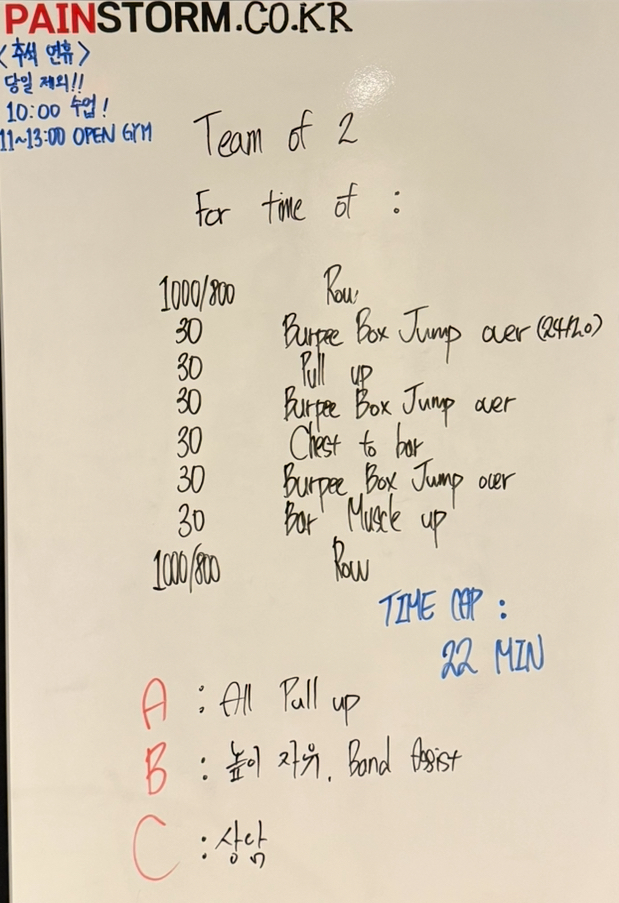 PAINSTORM.CO.KR
<추석 연휴>
당일 제외!!
10:00 수업!
11~13:00 OPEN GYM
Team of 2
For time of :
1000/800 Row
30 Burpee Box Jump over (24/20)
30 Pull up
30 Burpee Box Jump over
30 Chest to bar
30 Burpee Box Jump over
30 Bar Muscle up
1000/800 Row
TIME CAP :
22 MIN
A : All Pull up
B : 높이 자유. Band Assist
C : 상담